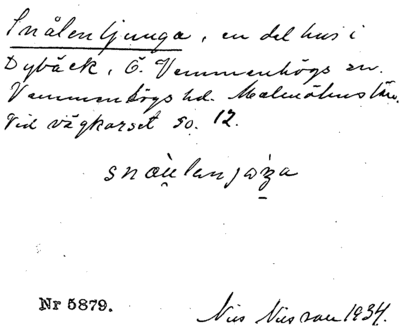 Snålen ljunga, en del hus i
Dybäck, Ö. Vemmenhögs sn.
Vemmenhögs hd. Malmöhus län.
Vid vägkorset so. 12.
Nr 5879.
Nils Nilsson 1934.